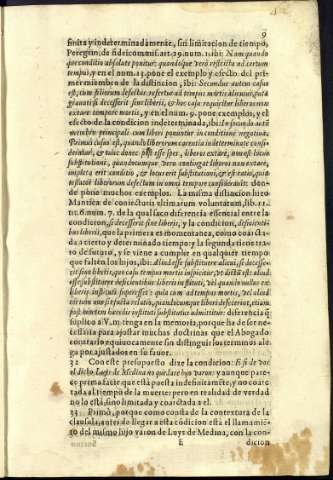 9
finita y indeterminadamente, sin limitacion de tiempo,
Peregrin. de fideicommis. art. 29. num. 1. ibi: Nam quando
que conditio absolute ponitur; quandoque verò restricta ad certum
tempus; y en el num. 13. pone el exemplo y efecto del pri-
mer miembro de la distincion, ibi: Secundus autem casus
est, cum filiorum defectus refertur ad tempus mortis alicuius, put à
grauati si decesserit sine liberis, & hoc casu requiritur liberos non
extare tempore mortis, y en el num. 9. pone exemplos, y el
efecto de la condicion indeterminada, ibi: & secundo
membro principali cum liberi ponuntur in conditione negatiua.
Primus casus est, quando liberorum carentia indeterminate consi-
deratur, & tunc donec post esse spes, liberos extare, non est locus
substitutioni, quandocumque vero contingat liberos non extare,
impleta erit conditio, & locus erit substitutioni, & est ratio, quia
testator liberorum defectum in omni tempore considerauit: don-
de pone muchos exemplos. La misma distincion hizo
Mantica de coniecturis vltimarum voluntatum, lib. 11.
tit. 6. num. 7. de la qual saco diferencia essencial entre la
condicion, si decesserit sine liberis, y la condicion, deficienti-
bus liberis, que la primera es momentanea, como coarcta-
da a cierto y determinado tiempo: y la segunda tiene tra-
to de futuro, y se viene a cumplir en qualquier tiempo
que falten los hijos, ibi: aliud esse substituere alicui, si decesse-
rit sine liberis, quia casu tempus mortis inspicitur, vt dictũ est: aliud
esse substituere deficientibus liberis instituti, vel quando nullus ex
liberis institutis superesset: quia cum ad tempus mortis, vel aliud
certum non sit facta relatio, quandocumque liberi defecerint, etiam
post mortem hæredis instituti substitutus admittitur: diferencia q̃
suplico a V. m. tenga en la memoria, porque ha de ser ne-
cessaria para ajustar muchas doctrinas que el Abogado
contrario equiuocamente sin distinguir los terminos ale-
ga por ajustados en su fauor.
32 Con este presupuesto dize la condicion: E si de vos
el dicho Luys de Medina no quedare hijo varon: y aunque pare-
ce prima facie que està puesta indefinitamẽte, y no coarc-
tada al tiempo de la muerte: pero en realidad de verdad
no lo està, sino limitada y coarctada a el.
33 Primò, porque como consta de la contextura de la
clausula, antes de llegar a esta cõdicion està el llamamiẽ-
to del mismo hijo varon de Luys de Medina, con la con-
E
dicion